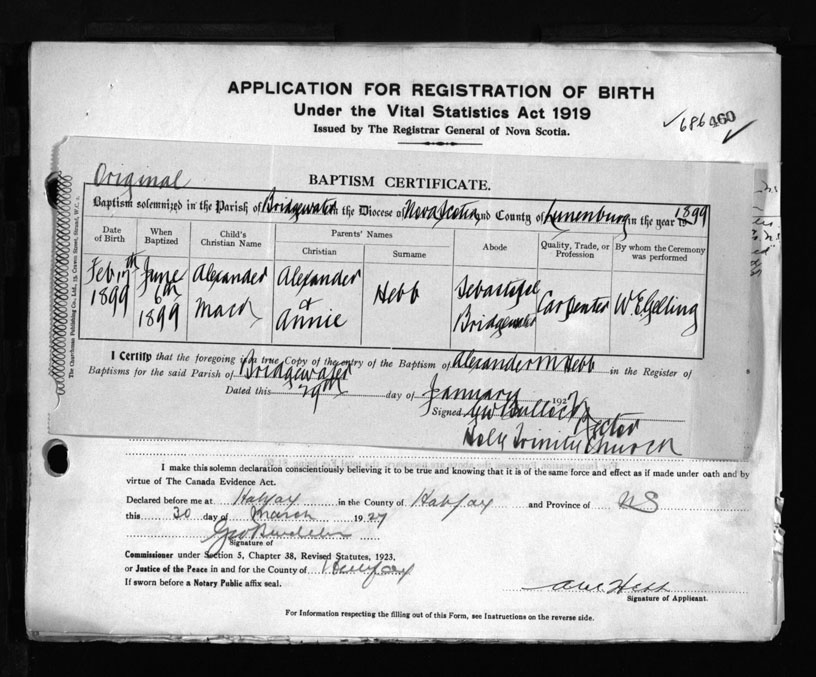 APPLICATION FOR REGISTRATION OF BIRTH
Under the Vital Statistics Act 1919
Issued by The Registrar General of Nova Scotia.
686 460
Original
BAPTISM CERTIFICATE.
Baptism solemnized in the Parish of Bridgewater in the Diocese of Nova Scotia and County of Lunenburg in the year 1899
Date of Birth When Baptized Child's Christian Name Parents' Names Christian Surname Abode Quality, Trade, or Profession By whom the Ceremony was performed
Feb 17th June Alexander Alexander Hebb Carpenter W. E. Gelling
1899 6th & Bridgewater
1899 Annie
I Certify that the foregoing is a true Copy of the entry of the Baptism of Alexander M Hebb in the Register of
Baptisms for the said Parish of Bridgewater
Dated this 29th day of January 1927
Signed G W Bullock Rector
Holy Trinity Church
The Churchman Publishing Co., Ltd.,
I make this solemn declaration conscientiously believing it to be true and knowing that it is of the same force and effect as if made under oath and by
virtue of The Canada Evidence Act.
Declared before me at Halifax in the County of Halifax and Province of NS
this 30 day of March 1927
Signature of
Commissioner under Section 5, Chapter 38, Revised Statutes, 1923,
or Justice of the Peace in and for the County of Halifax
If sworn before a Notary Public affix seal.
Hebb
Signature of Applicant.
For Information respecting the filling out of this Form, see Instructions on the reverse side.